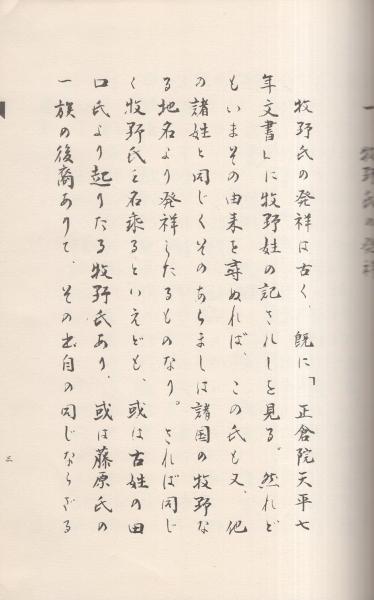 一 牧野氏の発祥
牧野氏の発祥は古く、既に「正倉院天平七
年文書」に牧野姓の記されしを見る。然れど
もいまその由来を尋ぬれば、この氏も又、他
の諸姓と同じくそのあらましは諸国の牧野な
る地名より発祥したるものなり。されば同じ
く牧野氏を名乗るといえども、或は古姓の田
口氏より起りたる牧野氏あり、或は藤原氏の
一族の後裔ありて、その出自の同じならざる
三